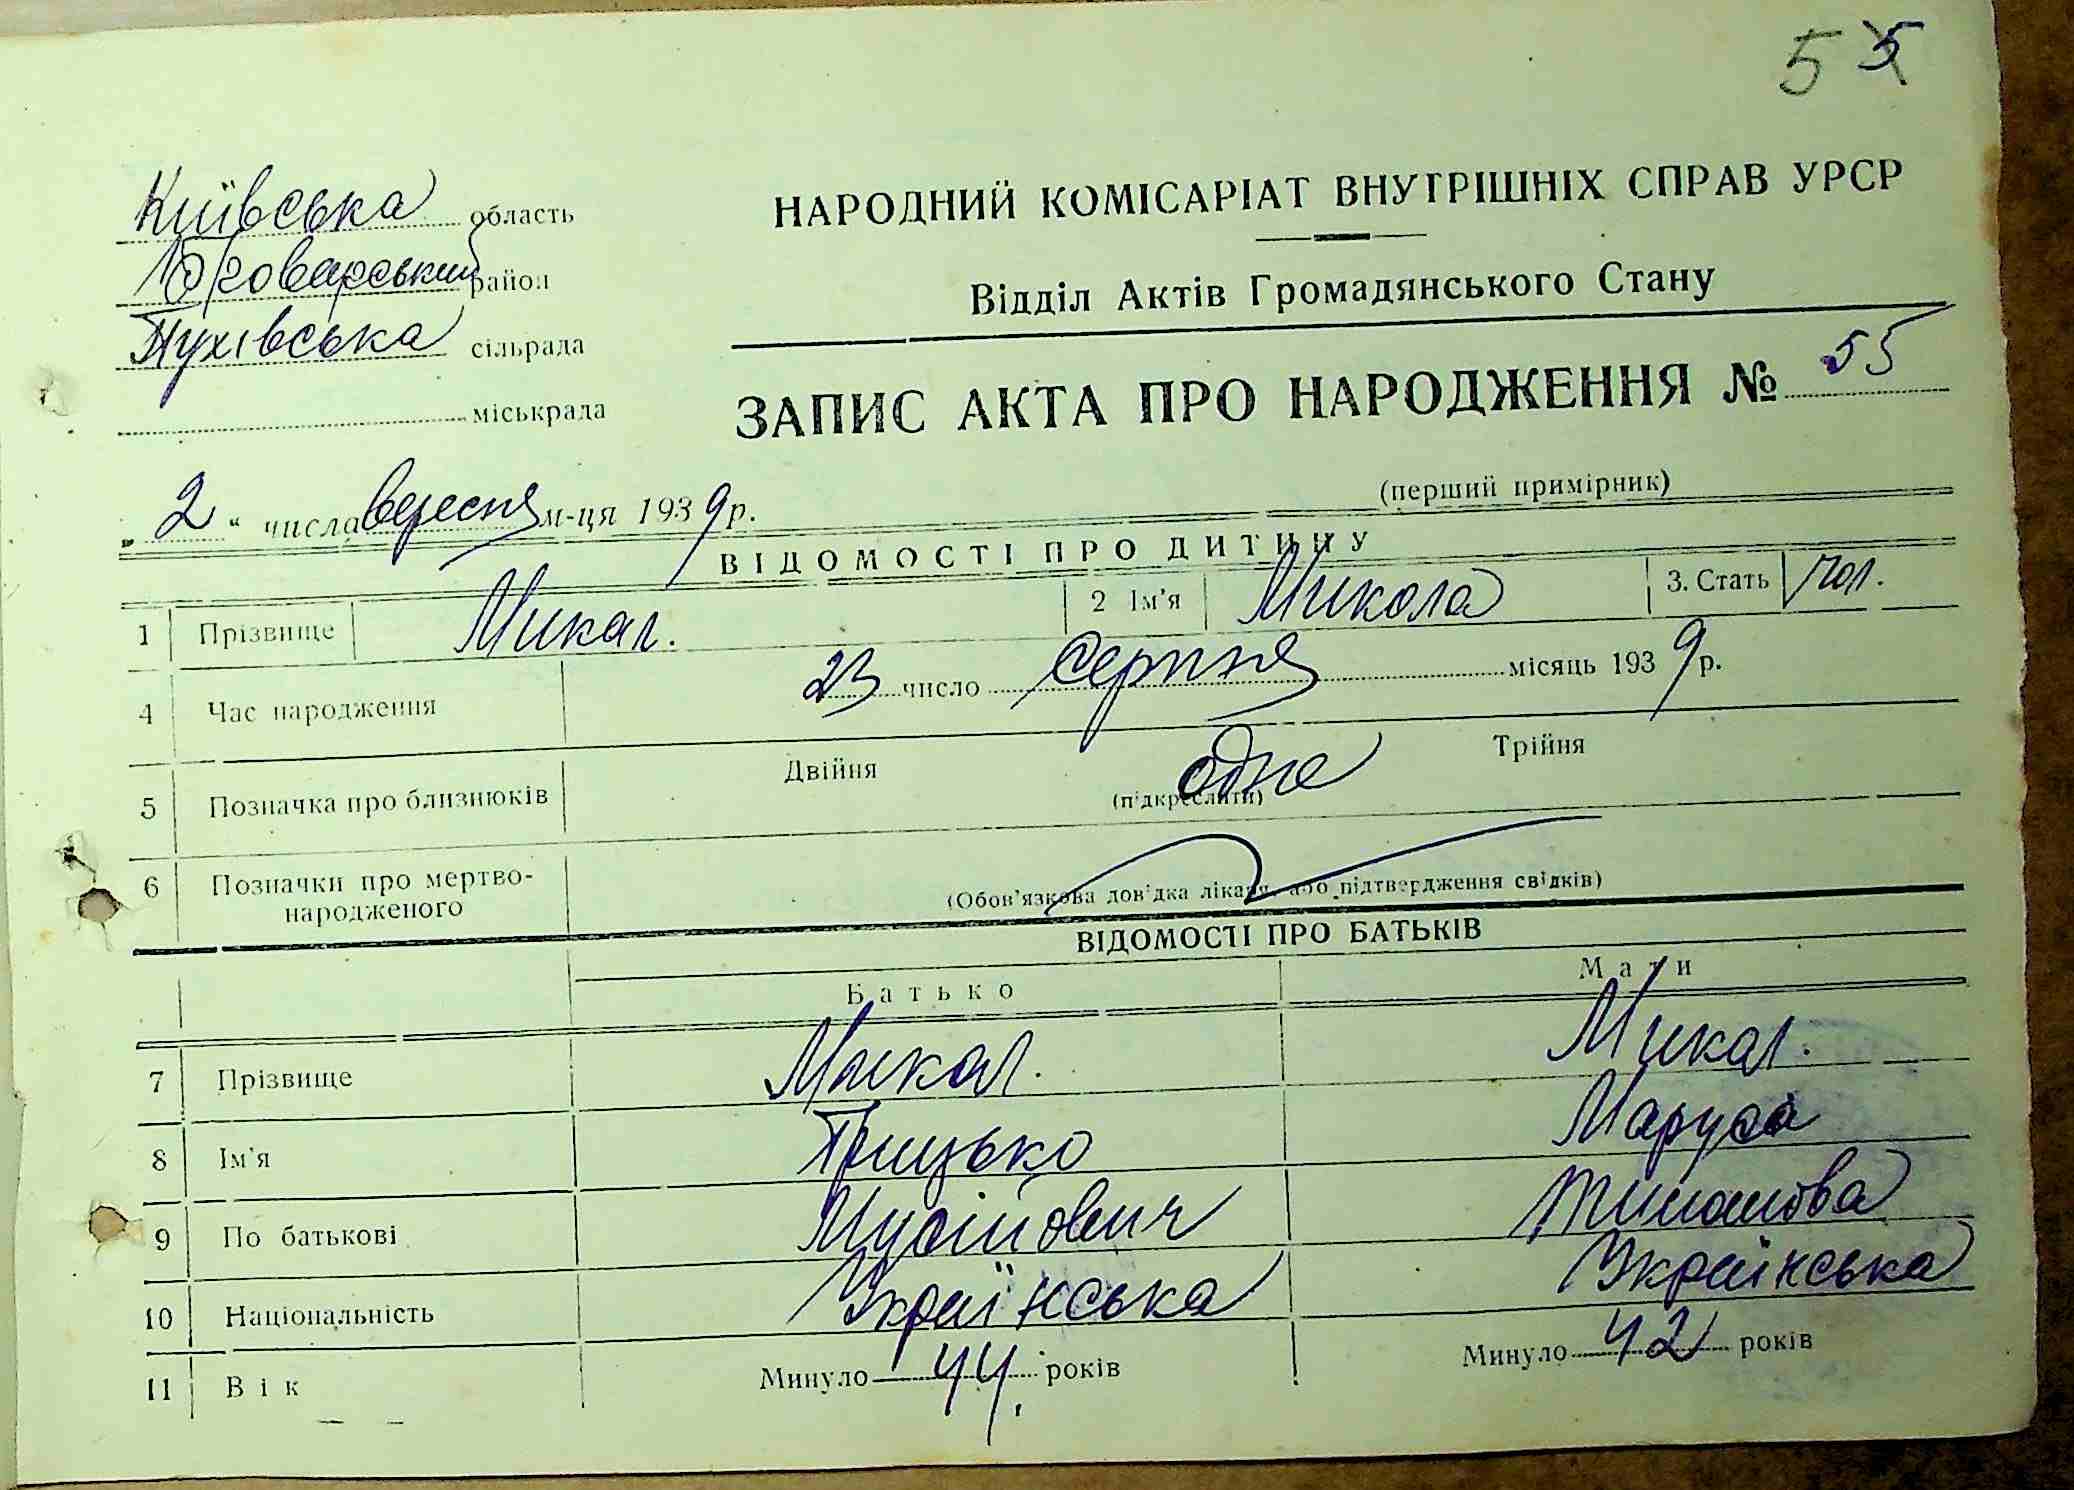 55
Київська область
Броварський район
Пухівська сільрада
міськрада
НАРОДНИЙ КОМІСАРІАТ ВНУТРІШНІХ СПРАВ УРСР
Відділ Актів Громадянського Стану
ЗАПИС АКТА ПРО НАРОДЖЕННЯ № 55
(перший примірник)
„2“ числа вересня м-ця 1939 р.
ВІДОМОСТІ ПРО ДИТИНУ
1 Прізвище Микал. 2 Ім'я Микола 3. Стать чол.
4 Час народження 23 число серпня місяць 1939 р.
5 Позначка про близнюків Двійня одне Трійня
(підкреслити)
6 Позначки про мертво-
народженого (Обов'язкова дов'дка лікаря, або підтвердження свідків)
ВІДОМОСТІ ПРО БАТЬКІВ
Батько Мати
7 Прізвище Микал. Микал.
8 Ім'я Грицько Маруся
9 По батькові Мусійович
10 Національність Українська Українська
11 Вік Минуло 44 років Минуло 42 років